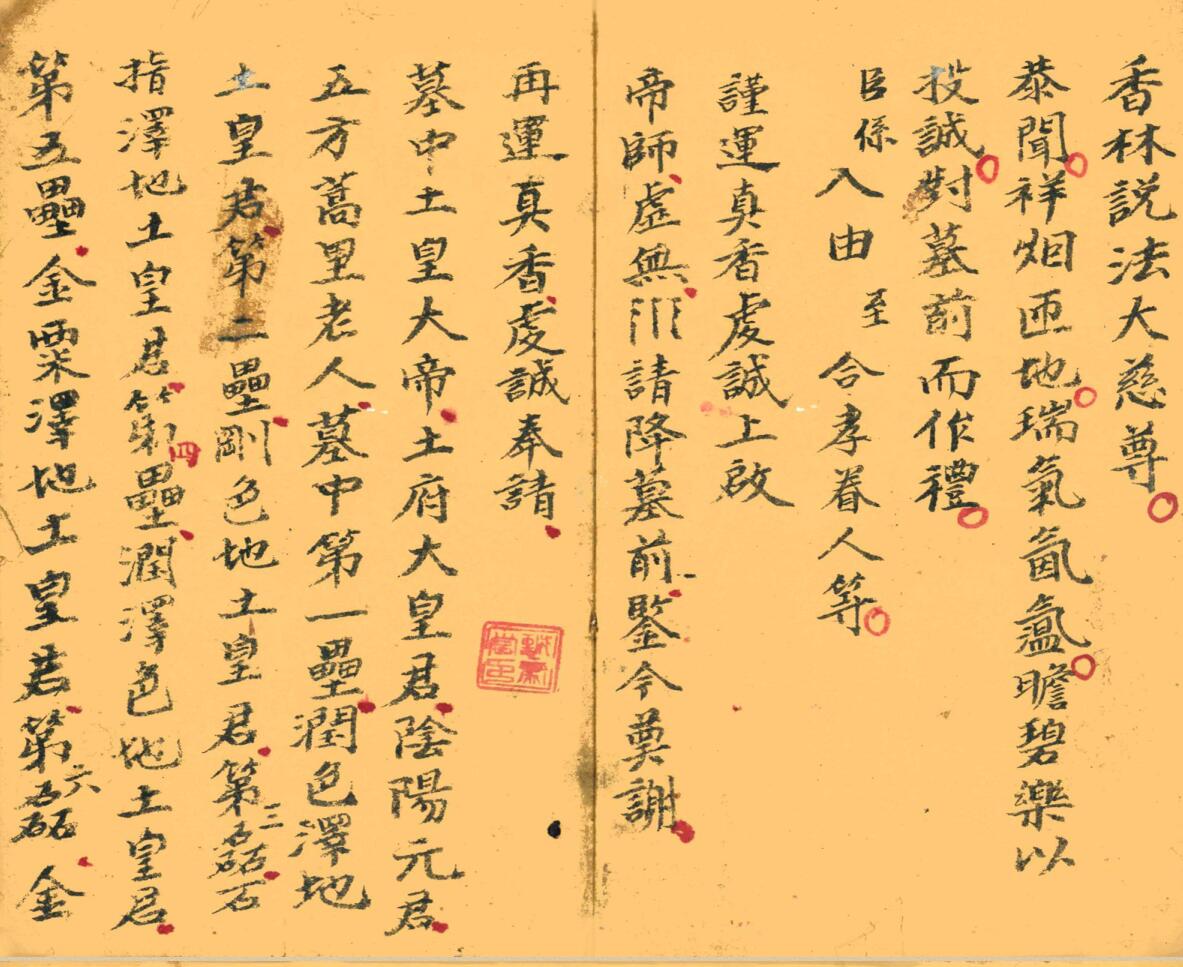 香林説法大慈尊
恭聞祥烟匝地瑞氣氤氳瞻碧樂以
投誠對墓前而作禮
臣係入由至合孝眷人等
謹運真香虔誠上啟
帝師虛無請降墓前鑒今奠謝
再運真香虔誠奉請
墓中土皇大帝土府大皇君陰陽元君
五方蒿里老人墓中第一壘潤色澤地
土皇君第二壘剛色地土皇君第三磊石
指澤地土皇君第四壘潤澤色地土皇君
第五壘金粟澤地土皇君第六磊金